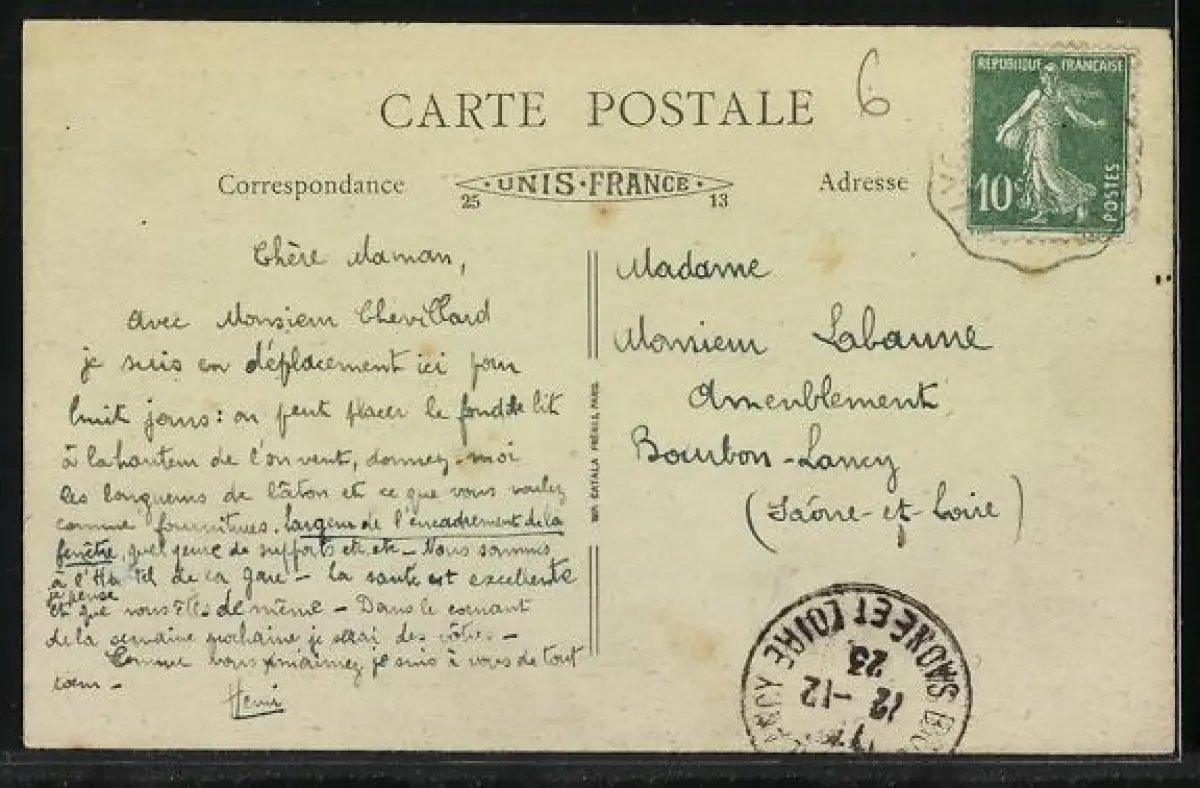 6
CARTE POSTALE
REPUBLIQUE FRANÇAISE
10c
POSTES
Correspondance
UNIS-FRANCE
25 13
Adresse
Chère Maman,
avec Monsieur Chevillard
je suis en déplacement ici pour
huit jours : on peut placer le fond de lit
à la hauteur de l'on veut, donnez-moi
les longueurs de bâton et ce que vous voulez
comme fournitures, largeur de l'encadrement de la
fenêtre, quel genre de supports etc etc - Nous sommes
à l'Hôtel de la gare - la santé est excellente
je pense
et que vous êtes de même - Dans le courant
de la semaine prochaine je serai des vôtres -
Comme vous m'aimez je suis à vous de tout
cœur -
Henri
IMP. CATALA FRÈRES, PARIS
Madame
Monsieur Labaune
Ameublement
Bourbon-Lancy
(Saône-et-Loire)
LANCY
SAONE ET LOIRE
12-12
23